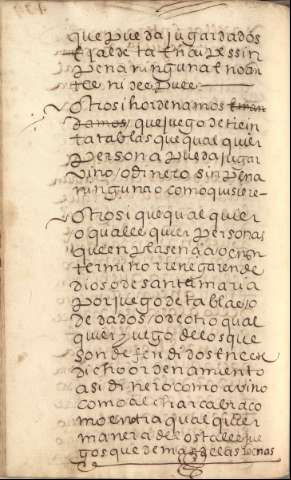 que pueda jugar dados
e jaldeta e naipes sin
pena ninguna l no on
ze ni de
Otrosi hordenamos e man
damos / que juego de trein
ta tablas que qual quier
persona pueda jugar
vino / o dinero sin pena
ninguna o como quisiere
Otrosi que qual quier
o quales quier personas
que en plasençia o en su
termino rrenegaren de
dios o de santa maria
por juego de tablas o
de dados / o de otro qual
quier juego de los que
son defendidos en este
dicho ordenamiento
asi dinero como a vino
como al chaz cabia co
mo en tra qual quier
manera de los tales jue
gos que demas de las penas